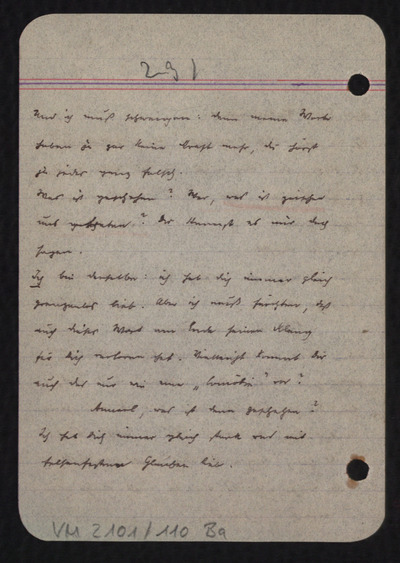 291
Und ich muß schweigen: denn meine Worte
haben ja gar keine Kraft mehr, du hörst
ja jedes ganz falsch.
Was ist geschehen? Was, was ist zwischen
uns getreten? Du kannst es mir doch
sagen.
Ich bin derselbe: ich hab dich immer gleich
lieb. Aber ich muß fürchten, daß
auch dieses Wort am Ende seinen Klang
für dich verloren hat. Vielleicht kommt dir
auch das nur wie eine „Comödie" vor?
, was ist denn geschehen?
Ich hab dich immer gleich stark und mit
felsenfestem Glauben lieb.
VM 2101/110 Ba